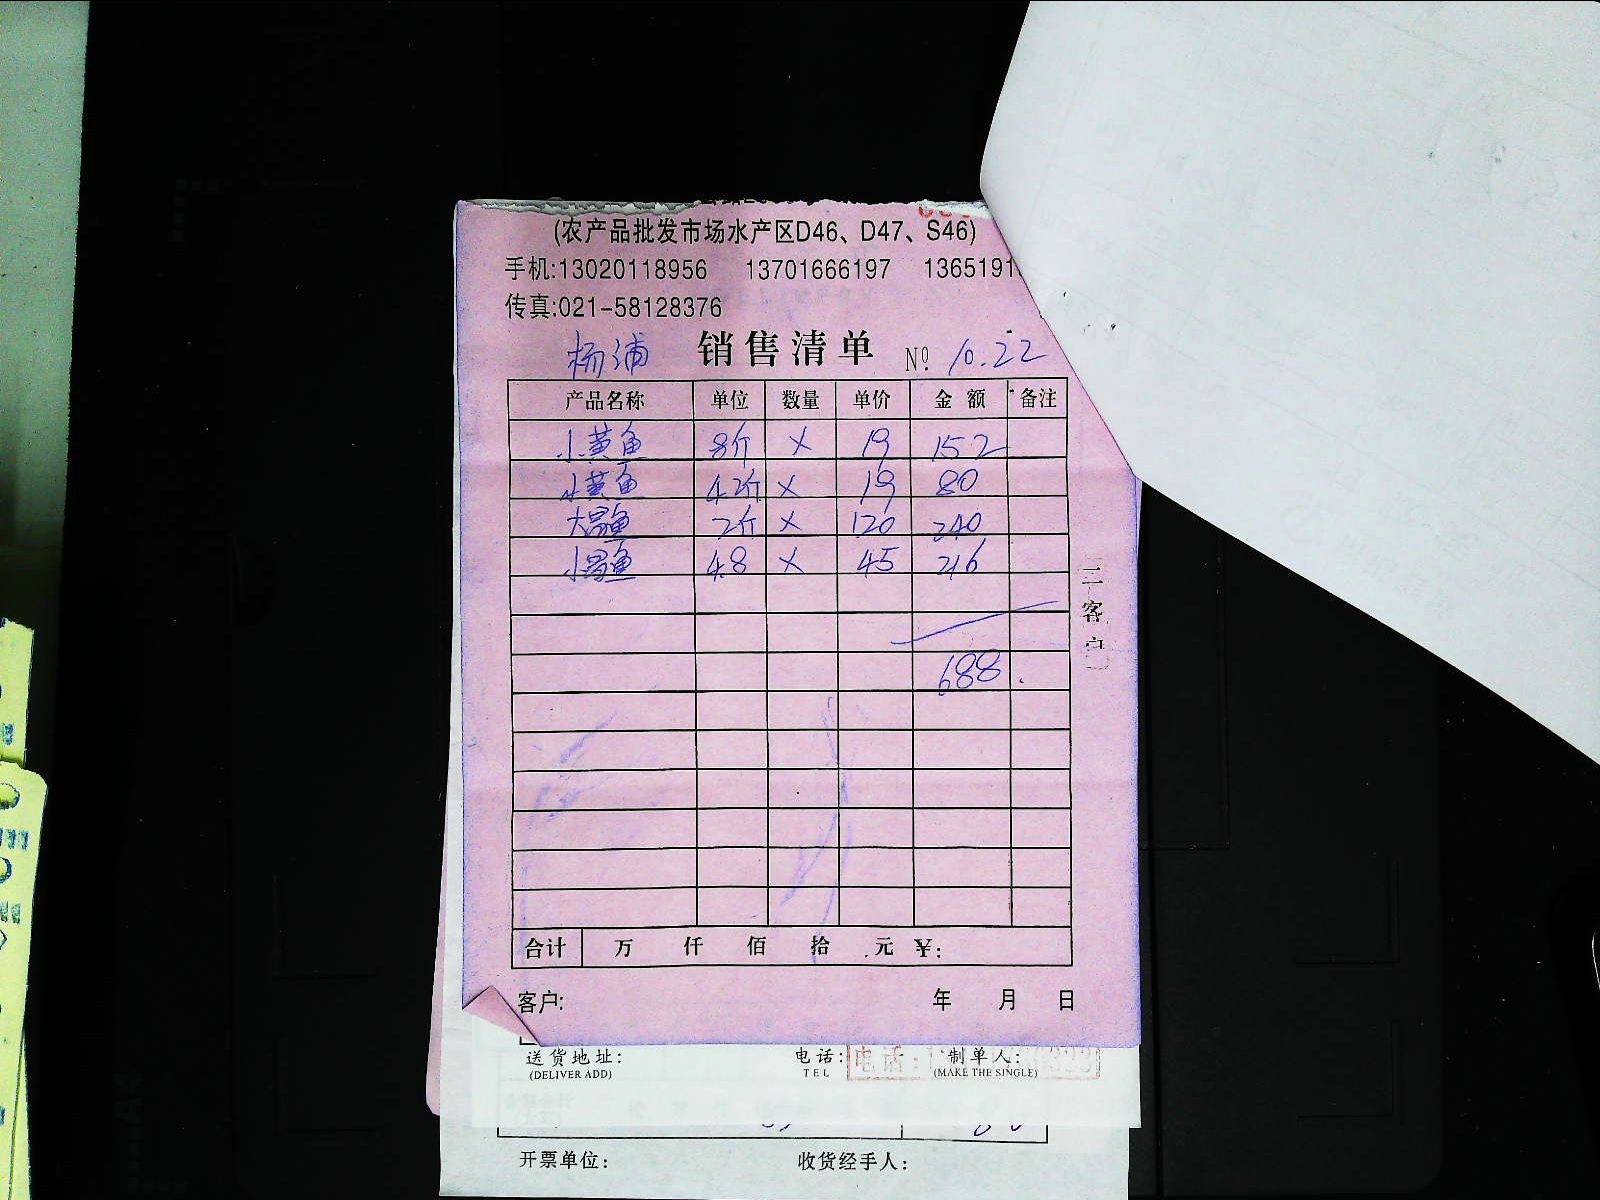 (农产品批发市场水产区D46、D47、S46)
手机:13020118956 13701666197 1365191
传真:021-58128376
杨浦 销售清单 №. 10.22
产品名称 单位 数量 单价 金额 备注
小黄鱼 8斤 × 19 152
小黄鱼 4.2斤 × 19 80
大昌鱼 2斤 × 120 240
小昌鱼 4.8 × 45 216
688.
三客户
合计 万 仟 佰 拾 元 ¥:
客户: 年 月 日
送货地址: 电话: 电话: 制单人:
(DELIVER ADD) TEL (MAKE THE SINGLE)
开票单位: 收货经手人: